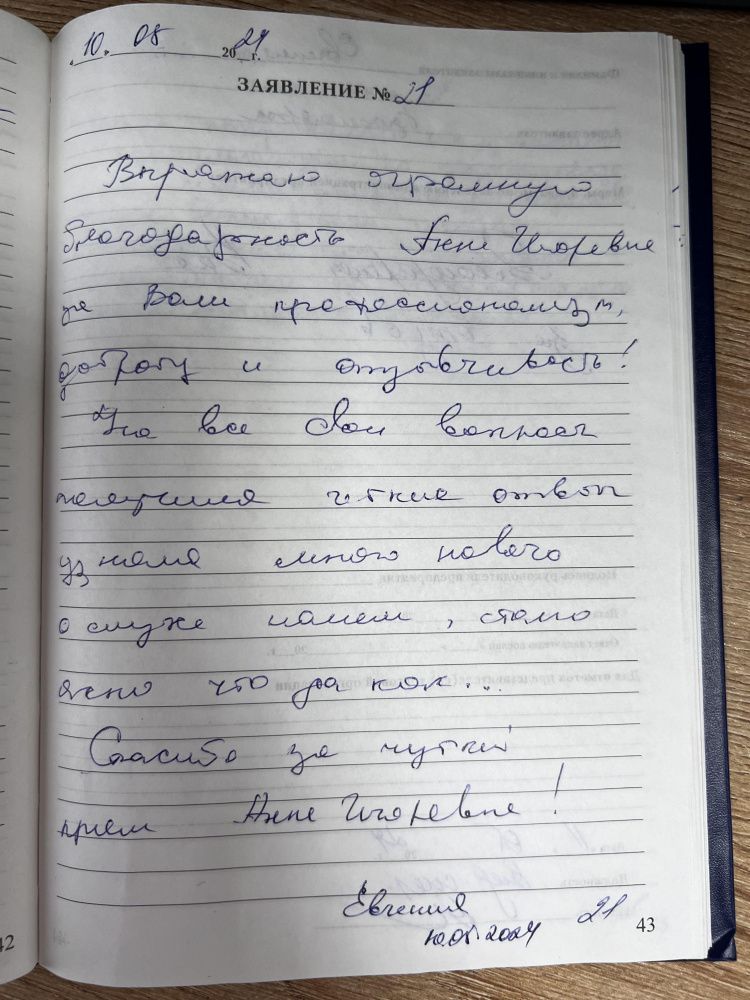 «10» 05 2024 г.
ЗАЯВЛЕНИЕ № 21
Выражаю огромную
благодарность Анне Игоревне
за Ваш профессионализм,
доброту и отзывчивость!
На все свои вопросы
получила чёткие ответы
узнала много нового
о слухе нашем, стало
ясно что да как...
Спасибо за чуткий
прием Анне Игоревне!
Евгения
10.05.2024
21
43
42